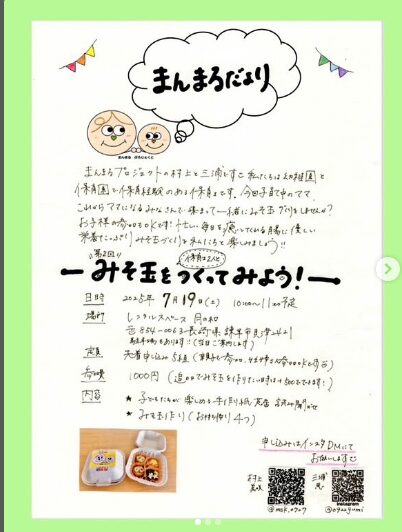 まんまるだより
まんまる ぷろじぇくと
まんまるプロジェクトの村上と三浦です。私たちは幼稚園と
保育園で保育経験のある保育士です。今回子育て中のママ、
これからママになるみなさんで集まって一緒にみそ玉づくりをしませんか？
お子様の参加もOKです！忙しい毎日を
腸に優しい
みそ玉づくりを私たちと楽しみましょう!!
第2回
保育士2人と
みそ玉をつくってみよう！
日時 2025年 7月19日(土) 10:00〜11:00予定
場所 レンタルスペース 月の和
〒854-0063 長崎県諫早市貝津2421
駐車場もあります!!(当日ご案内します)
定員 先着申し込み 5組
参加費 1000円 (追加でみそ玉を作りたい時は+500でできます！)
内容 ★ 子どもたちが楽しめる手作り紙芝居 読み聞かせ
★ みそ玉作り (お持ち帰り4つ)
申し込みはインスタDMにて
お願いします
村上
三浦